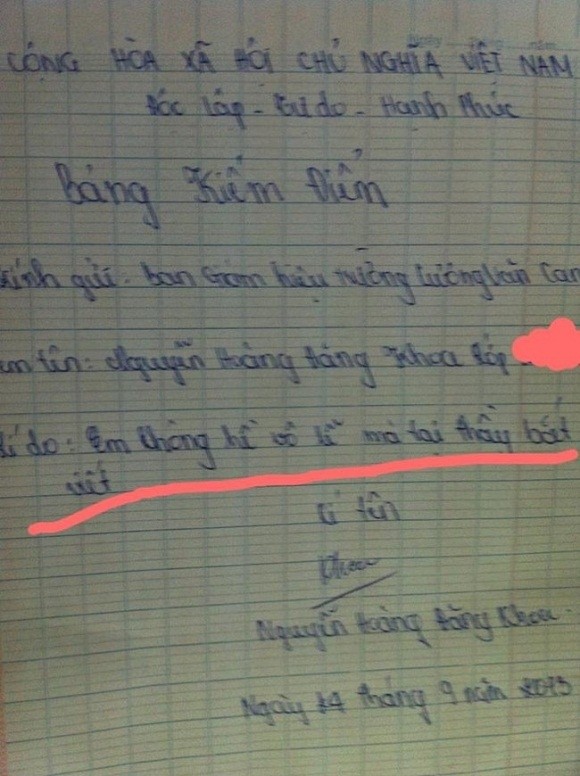 CỘNG HÒA XÃ HỘI CHỦ NGHĨA VIỆT NAM
Độc lập - Tự do - Hạnh Phúc
Bảng Kiểm Điểm
kính gửi: ban Giám hiệu trường Lương Văn Can
em tên: Nguyễn Hoàng Đăng Khoa lớp
Lí do: Em không hề vô lễ mà tại thầy bắt
viết
kí tên
Khoa
Nguyễn Hoàng Đăng Khoa
Ngày 14 tháng 9 năm 2013